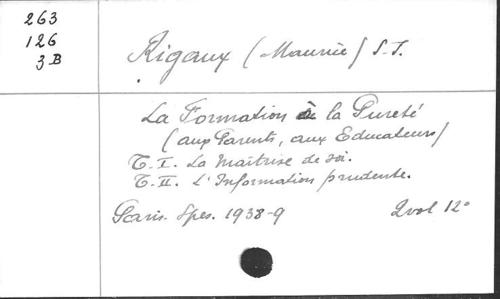 263
126
3 B
Rigaux (Maurice) S. J.
La Formation à la Pureté
(aux Parents, aux Educateurs)
T. I. La Maîtrise de soi.
T. II. L'Information prudente.
Paris. Spes. 1938-9 2 vol 12°